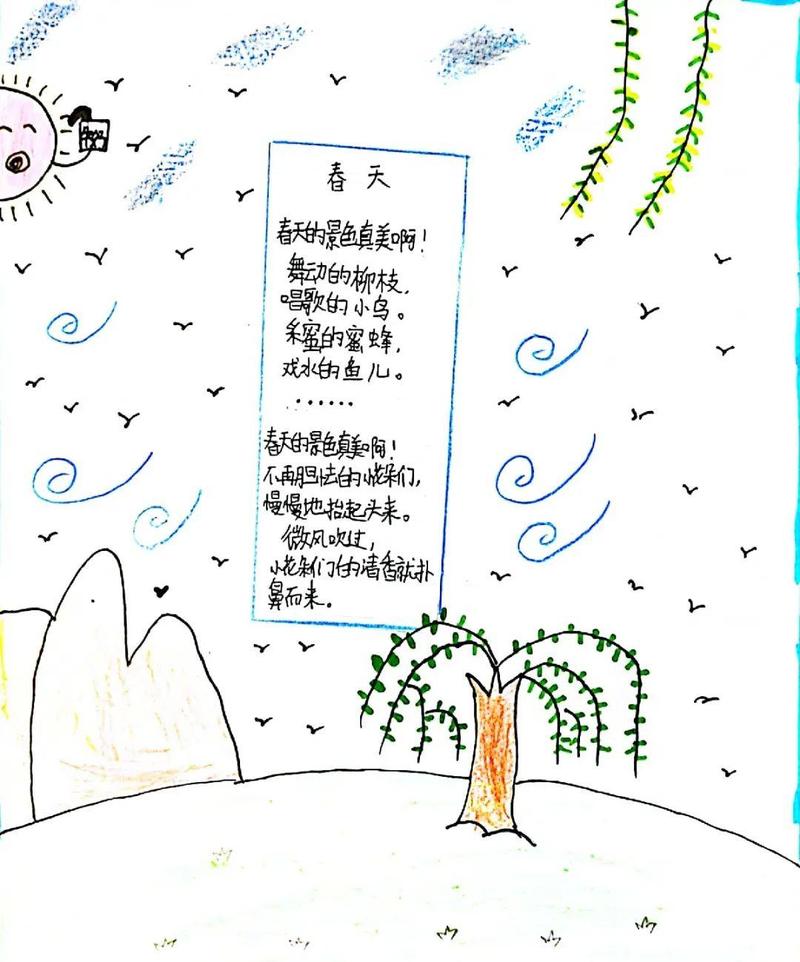 春天
春天的景色真美啊！
舞动的柳枝，
唱歌的小鸟。
采蜜的蜜蜂，
戏水的鱼儿。
······
春天的景色真美啊！
不再胆怯的小花朵们，
慢慢地抬起头来。
微风吹过，
小花朵们的清香就扑
鼻而来。